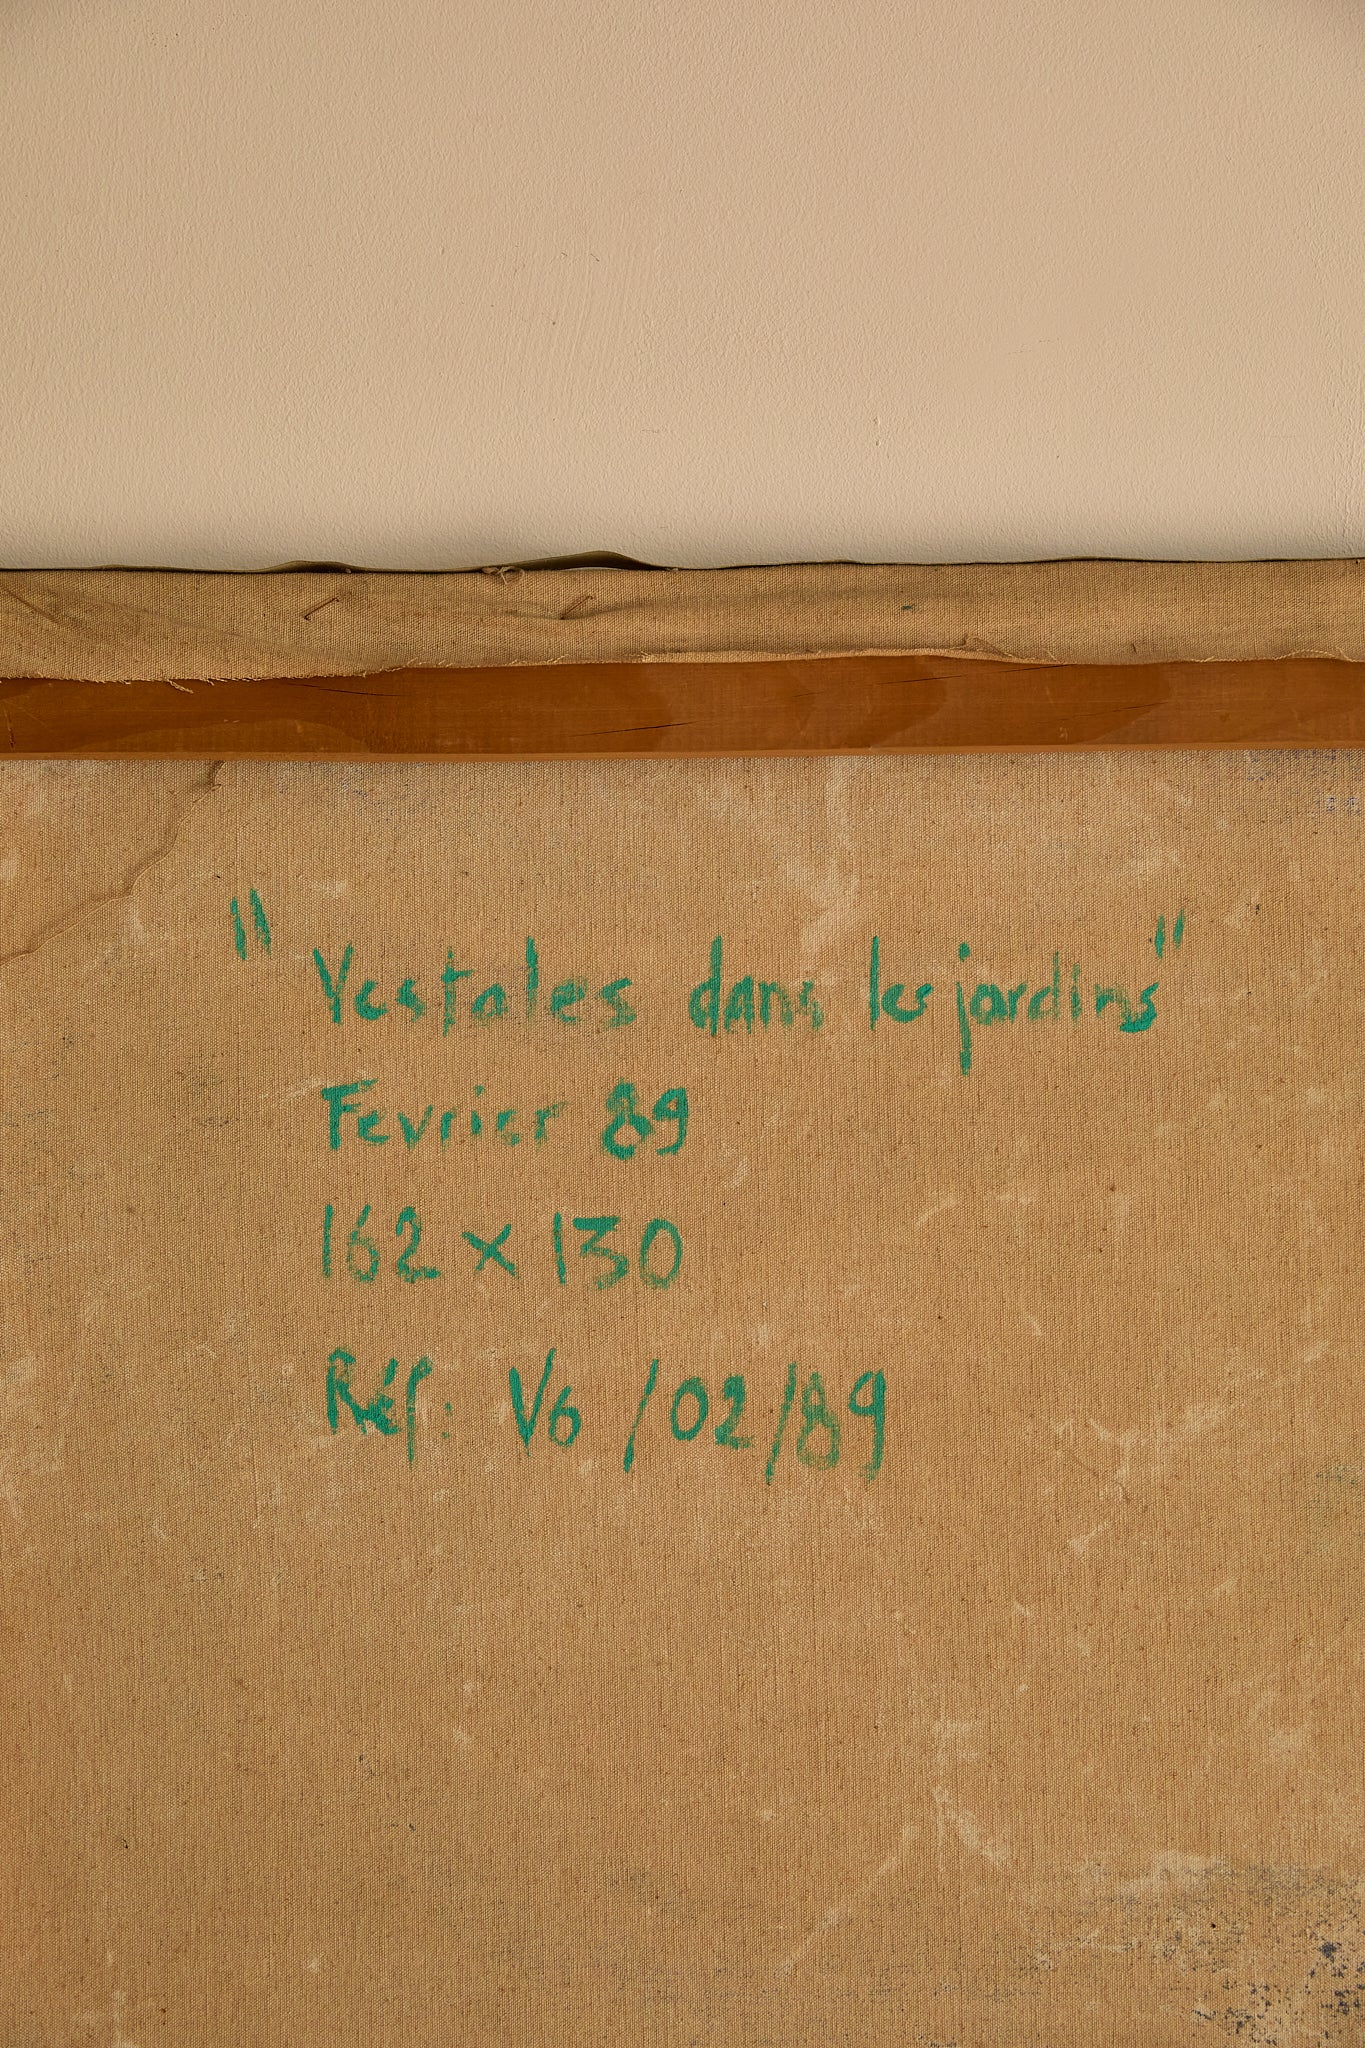 "Vestales dans les jardins"
Fevrier 89
162 x 130
Réf: V6 /02/89